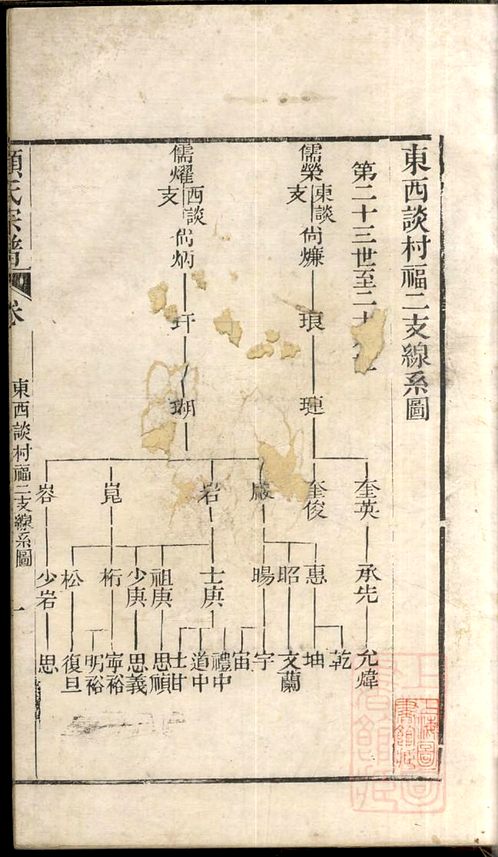 東西談村福二支線系圖
第二十三世至二十
儒榮東談支
尙㷠
琅
璉
奎英
奎俊
承先
惠
允煒
乾
坤
儒耀西談支
尙炳
玕
瑚
巖
岩
崑
容
昭
暘
士庚
祖庚
少庚
桁
松
少岩
文蘭
宇
宙
禮中
道中
士甘
思禎
思義
寧裕
明裕
復旦
思
顧氏宗譜
卷
東西談村福二支線系圖
一
上海圖書館藏